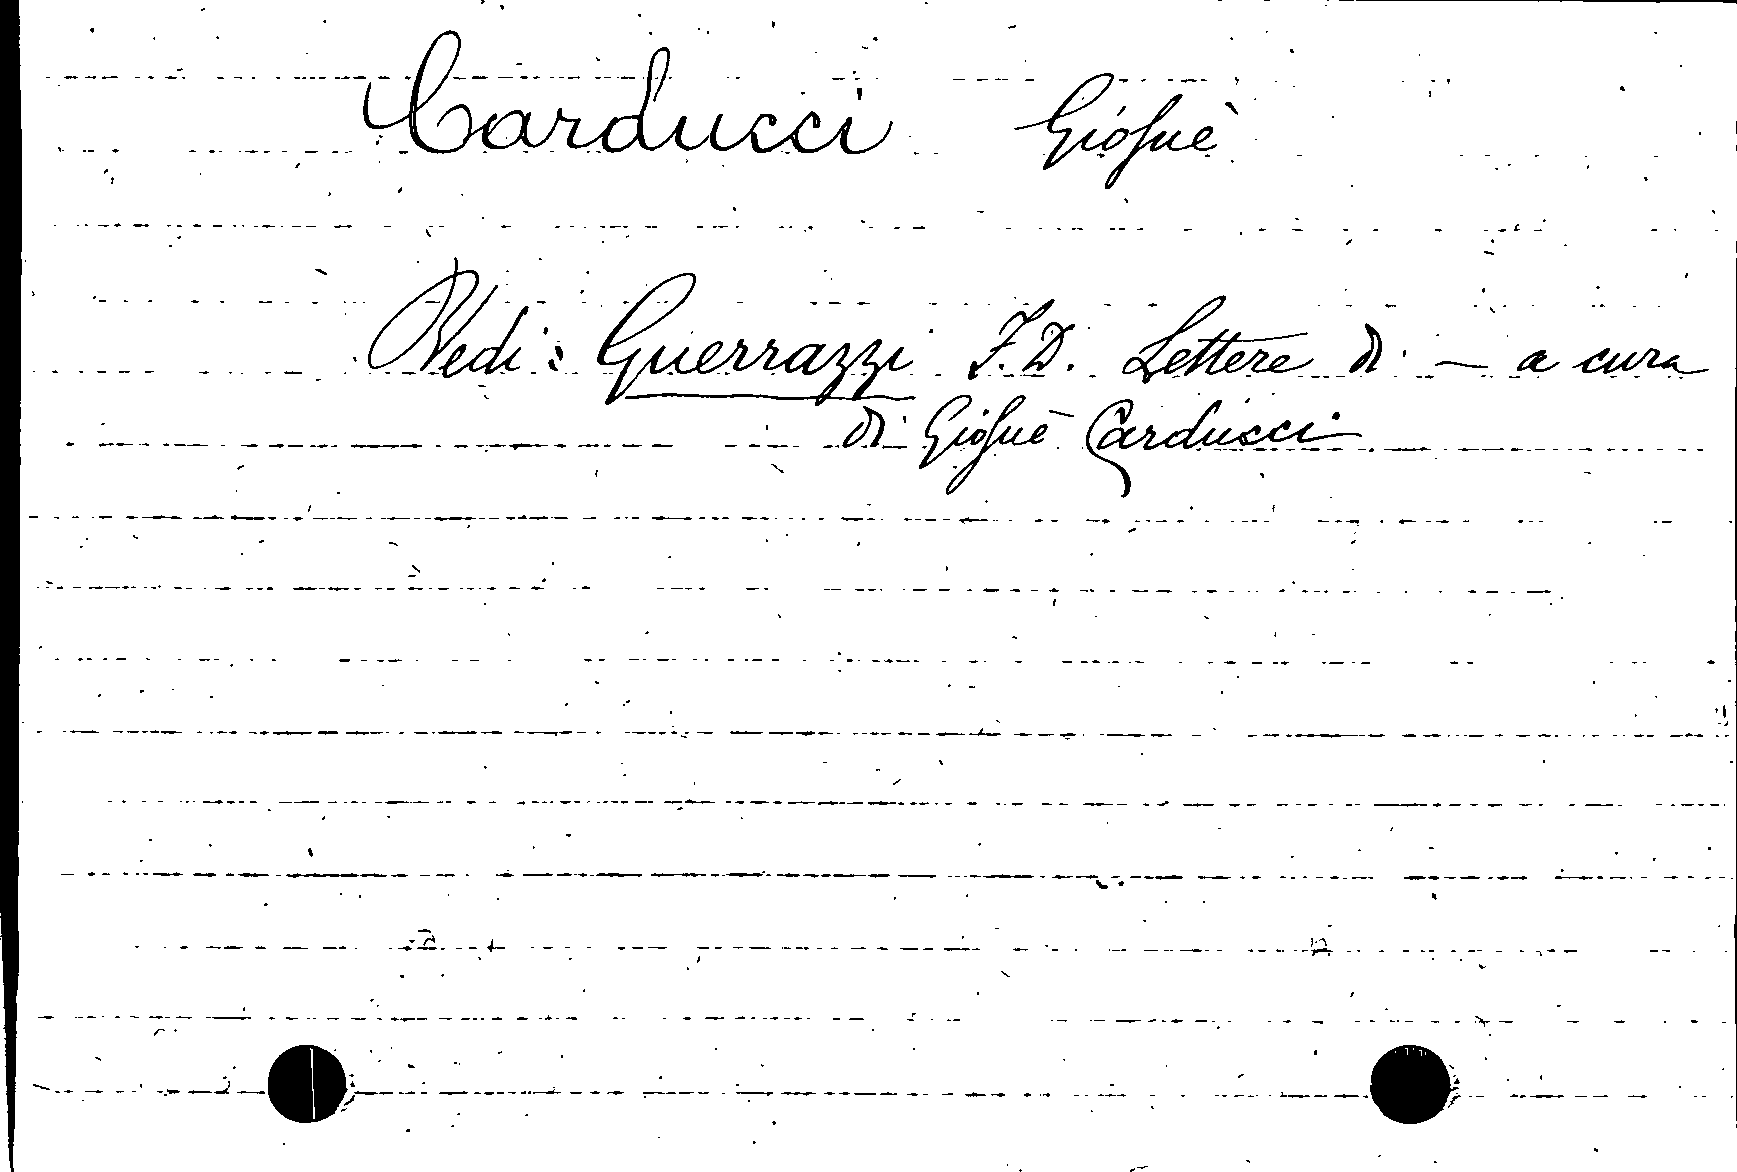 Carducci Giosuè
Vedi: Guerrazzi F.D. Lettere di — a cura
di Giosuè Carducci